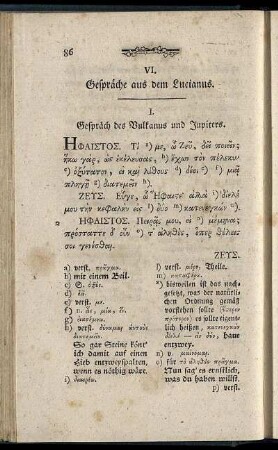 86
VI.
Gespräche aus dem Lucianus.
I.
Gespräch des Vulkanus und Jupiters.
ΗΦΑΙΣΤΟΣ. Τί a) με, ὦ Ζεῦ, δεῖ ποιεῖν;
ἥκω γὰρ, ὡς ἐκέλευσας, b) ἔχων τὸν πέλεκυν
c) ὀξύτατον, εἰ καὶ λίθους d) δέοι e) f) μιᾷ
πληγῇ g) διατεμεῖν h).
ΖΕΥΣ. Εὖγε, ὦ Ἥφαιστε
μου τὴν κεφαλὴν εἰς l) δύο m) κατενεγκών n).
ΗΦΑΙΣΤΟΣ. Πειρᾷ μου, εἰ o) μέμηνα;
πρόσταττε δ' οὖν τἀληθὲς, ὅπερ θέλεις
σοι γενέσθαι.
ΖΕΥΣ.
a) verst. πρᾶγμα.
b) mit einem Beil.
c) S. ὀξύς.
d)
e) verst. με.
f) n. ἃς, μία, ἓν.
g)
h) verst. δύναμαι αὐτοὺς
διατεμεῖν.
So gar Steine könt'
ich damit auf einen
Hieb entzweyspalten,
wenn es nöthig wäre.
i)
l) verst. μέρη, Theile.
m) καταφέρω.
n) bisweilen ist das nach-
gesetzt, was der natürli-
chen Ordnung gemäß
vorstehen sollte (ὕστερον
πρότερον) es sollte eigent-
lich heißen, κατενεγκὼν
δίελε — εἰς δύο, haue
entzwey.
o) v. μαίνομαι.
p) für τὸ ἀληθὲς πρᾶγμα.
Nun sag' es ernstlich,
was du haben willst.
p) verst.